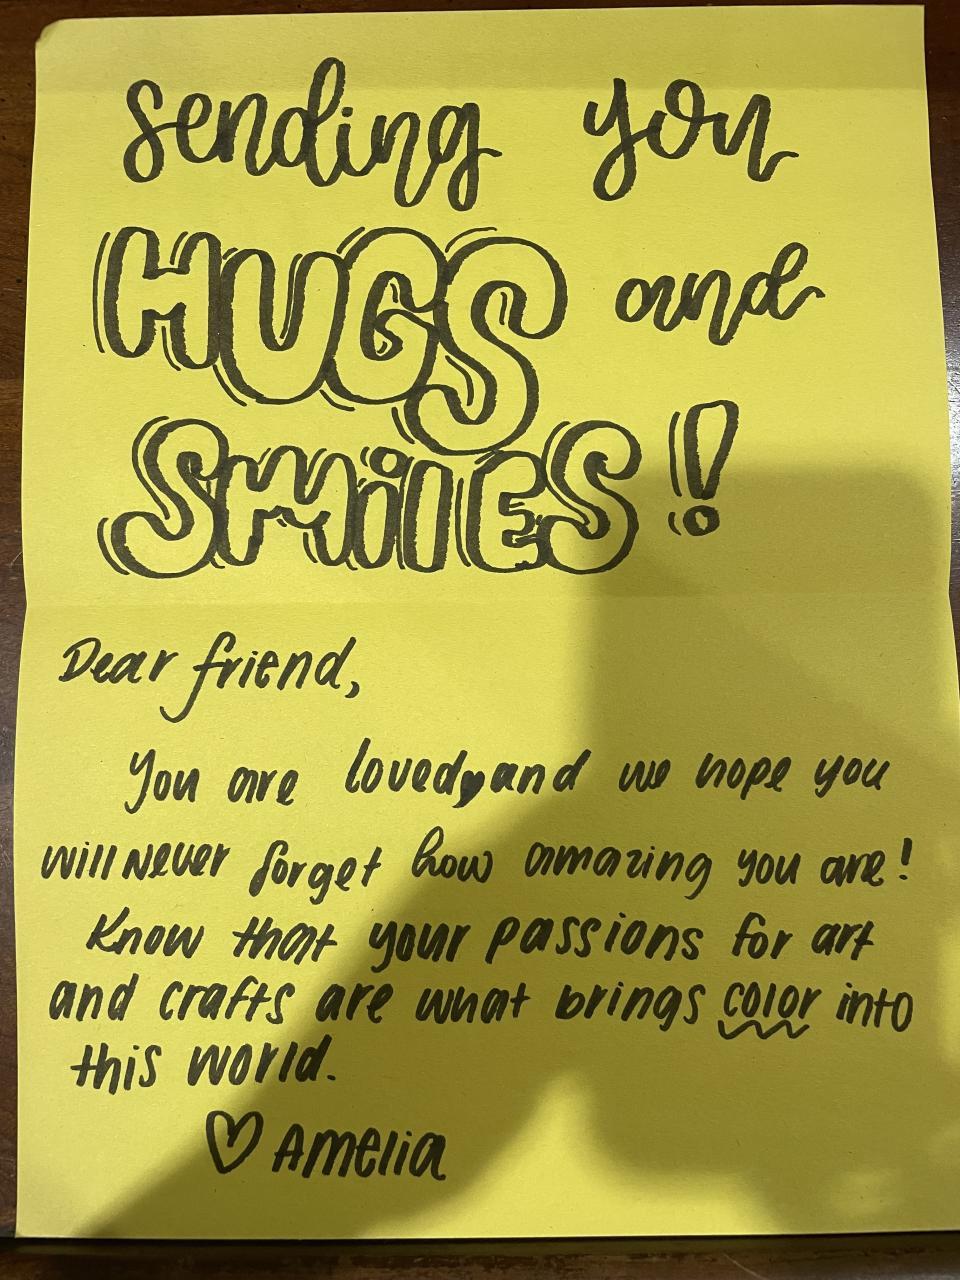 sending you
HUGS and
SMiLES!
Dear friend,
You are loved, and we hope you
will never forget how amazing you are!
Know that your passions for art
and crafts are what brings color into
this world.
♡ Amelia